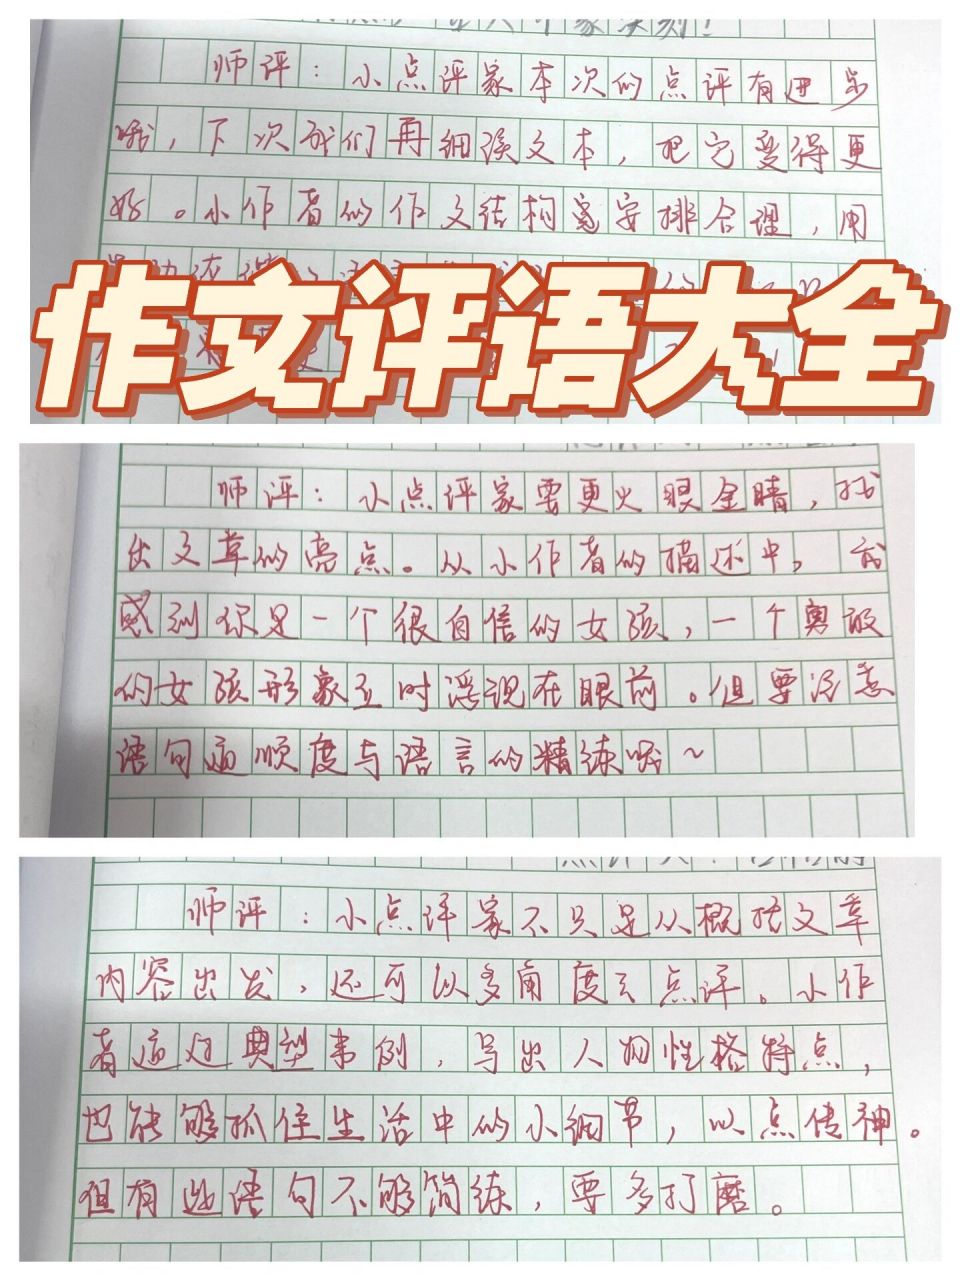 师评：小点评家本次的点评有进步
哦，下次我们再细读文本，把它变得更
好。小作者的作文结构完安排合理，用
作文评语大全
师评：小点评家要更火眼金睛，找
出文章的亮点。从小作者的描述中，我
感到你是一个很自信的女孩，一个勇敢
的女孩形象立时浮现在眼前。但要注意
语句通顺度与语言的精练哦~
师评：小点评家不只是从概括文章
内容出发，还可以多角度去点评。小作
者通过典型事例，写出人物性格特点，
也能够抓住生活中的小细节，以点传神。
但有些语句不够简练，要多打磨。